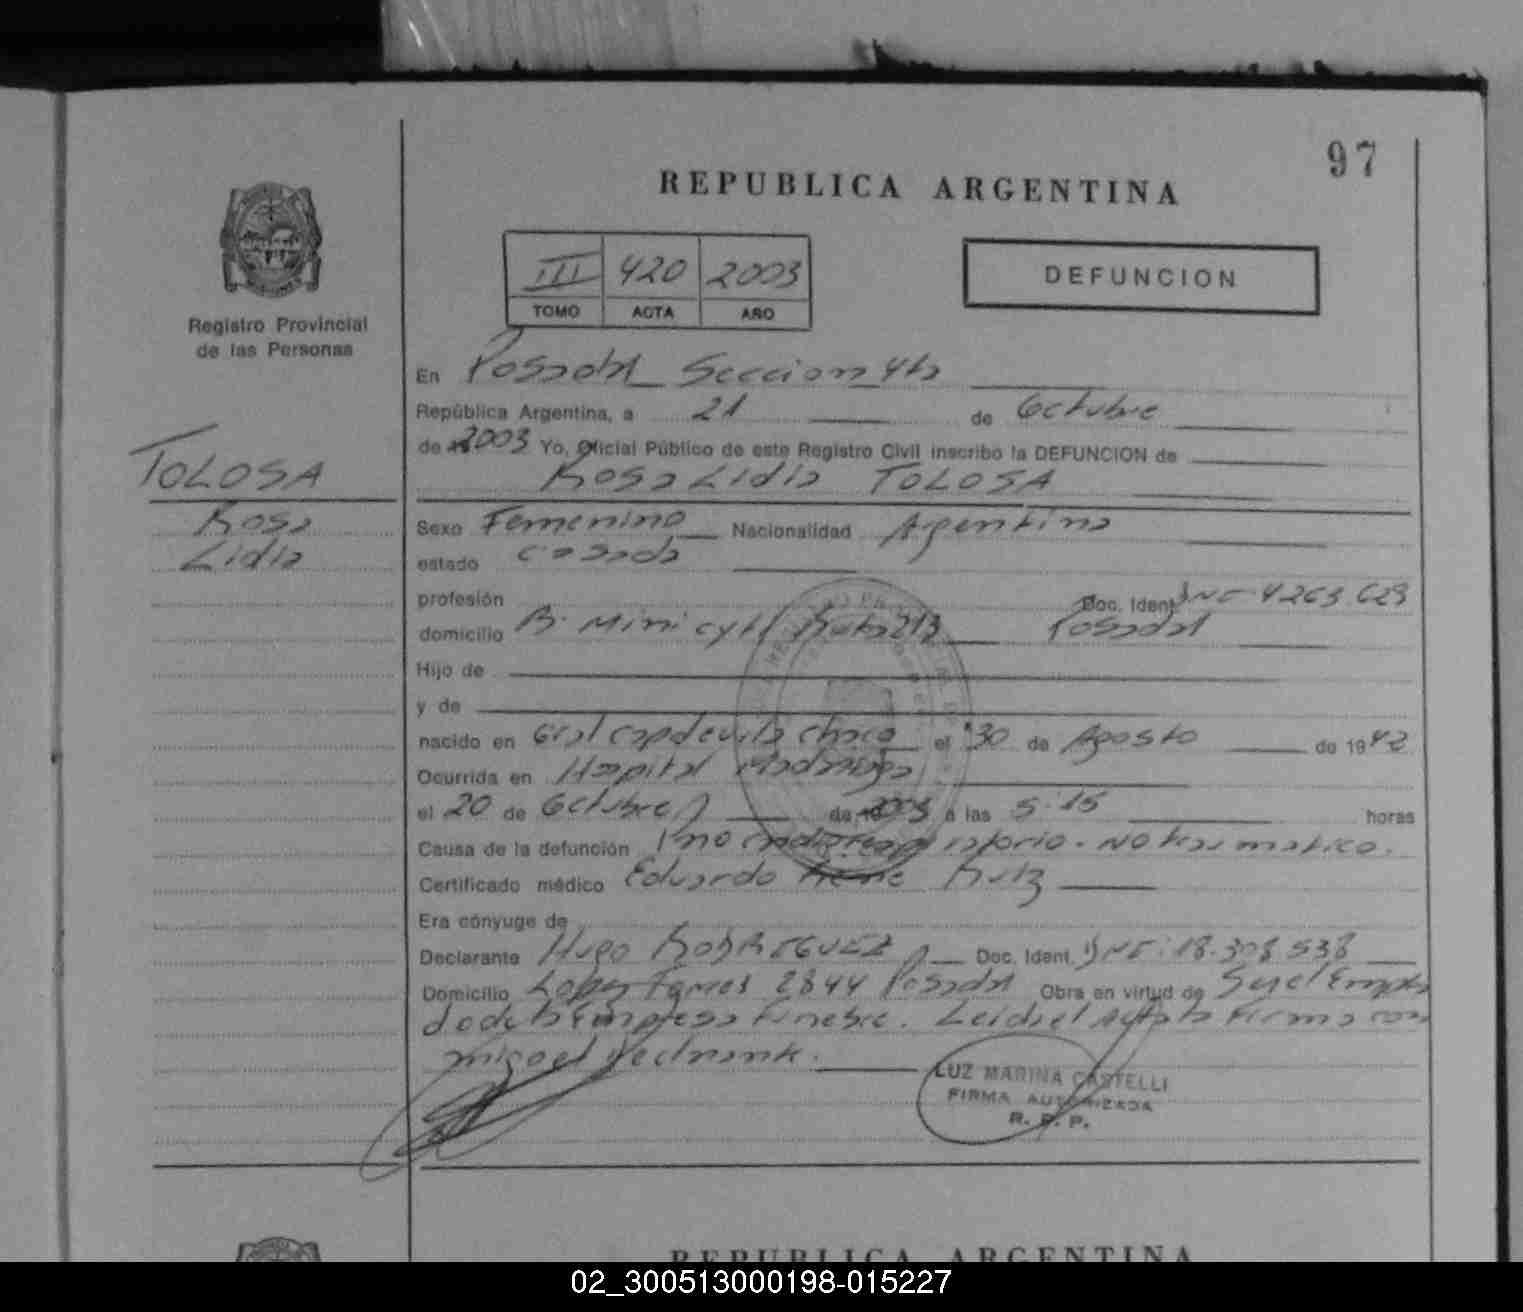 97
REPUBLICA ARGENTINA
III 420 2003
TOMO ACTA AÑO
DEFUNCION
Registro Provincial
de las Personas
En Posadas Seccion 4ta
República Argentina, a 21 de Octubre
de 19 2003 Yo, Oficial Público de este Registro Civil inscribo la DEFUNCION de
Rosa Lidia TOLOSA
TOLOSA
Rosa
Lidia
Sexo Femenino Nacionalidad Argentina
estado casada
profesión Doc. Ident. DNI 4263.623
domicilio B. Mini city Ruta 213 Posadas
Hijo de
y de
nacido en Gral capdevila chaco el 30 de Agosto de 1942
Ocurrida en Hospital Madariaga
el 20 de Octubre de 19 2003 a las 5:15 horas
Causa de la defunción Paro cardiorespiratorio. No traumatico.
Certificado médico Eduardo Rene Ruiz
Era cónyuge de
Declarante Hugo RODRIGUEZ Doc. Ident. DNI: 18.308.538
Domicilio Lopez Torres 2844 Posadas Obra en virtud de Ser el Emplea
do de la Empresa Funebre. Leida el Acta la Firma con
migo el declarante.
LUZ MARINA CASTELLI
FIRMA AUTORIZADA
R. P. P.
REPUBLICA ARGENTINA
02_300513000198-015227